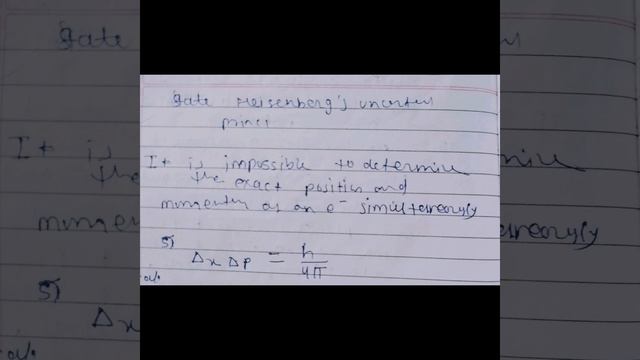 State Heisenberg's uncertain
princi
It is impossible to determine
the exact position and
momentum as an e⁻ simultaneously
5)
Δx Δp = h/4π